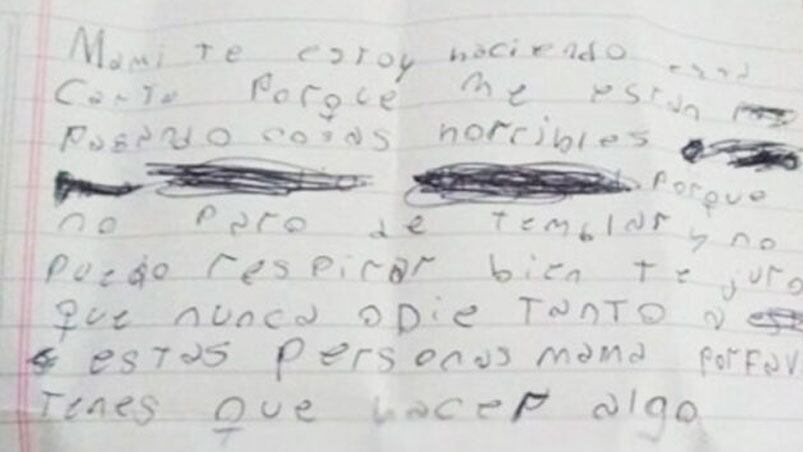 Mami te estoy haciendo esta
Carta Porque me estan
Pasando cosas horribles
Porque
no paro de temblar y no
Puedo respirar bien te juro
que nunca odie TanTO a
estas personas mama porfav
Tenes que hacer algo